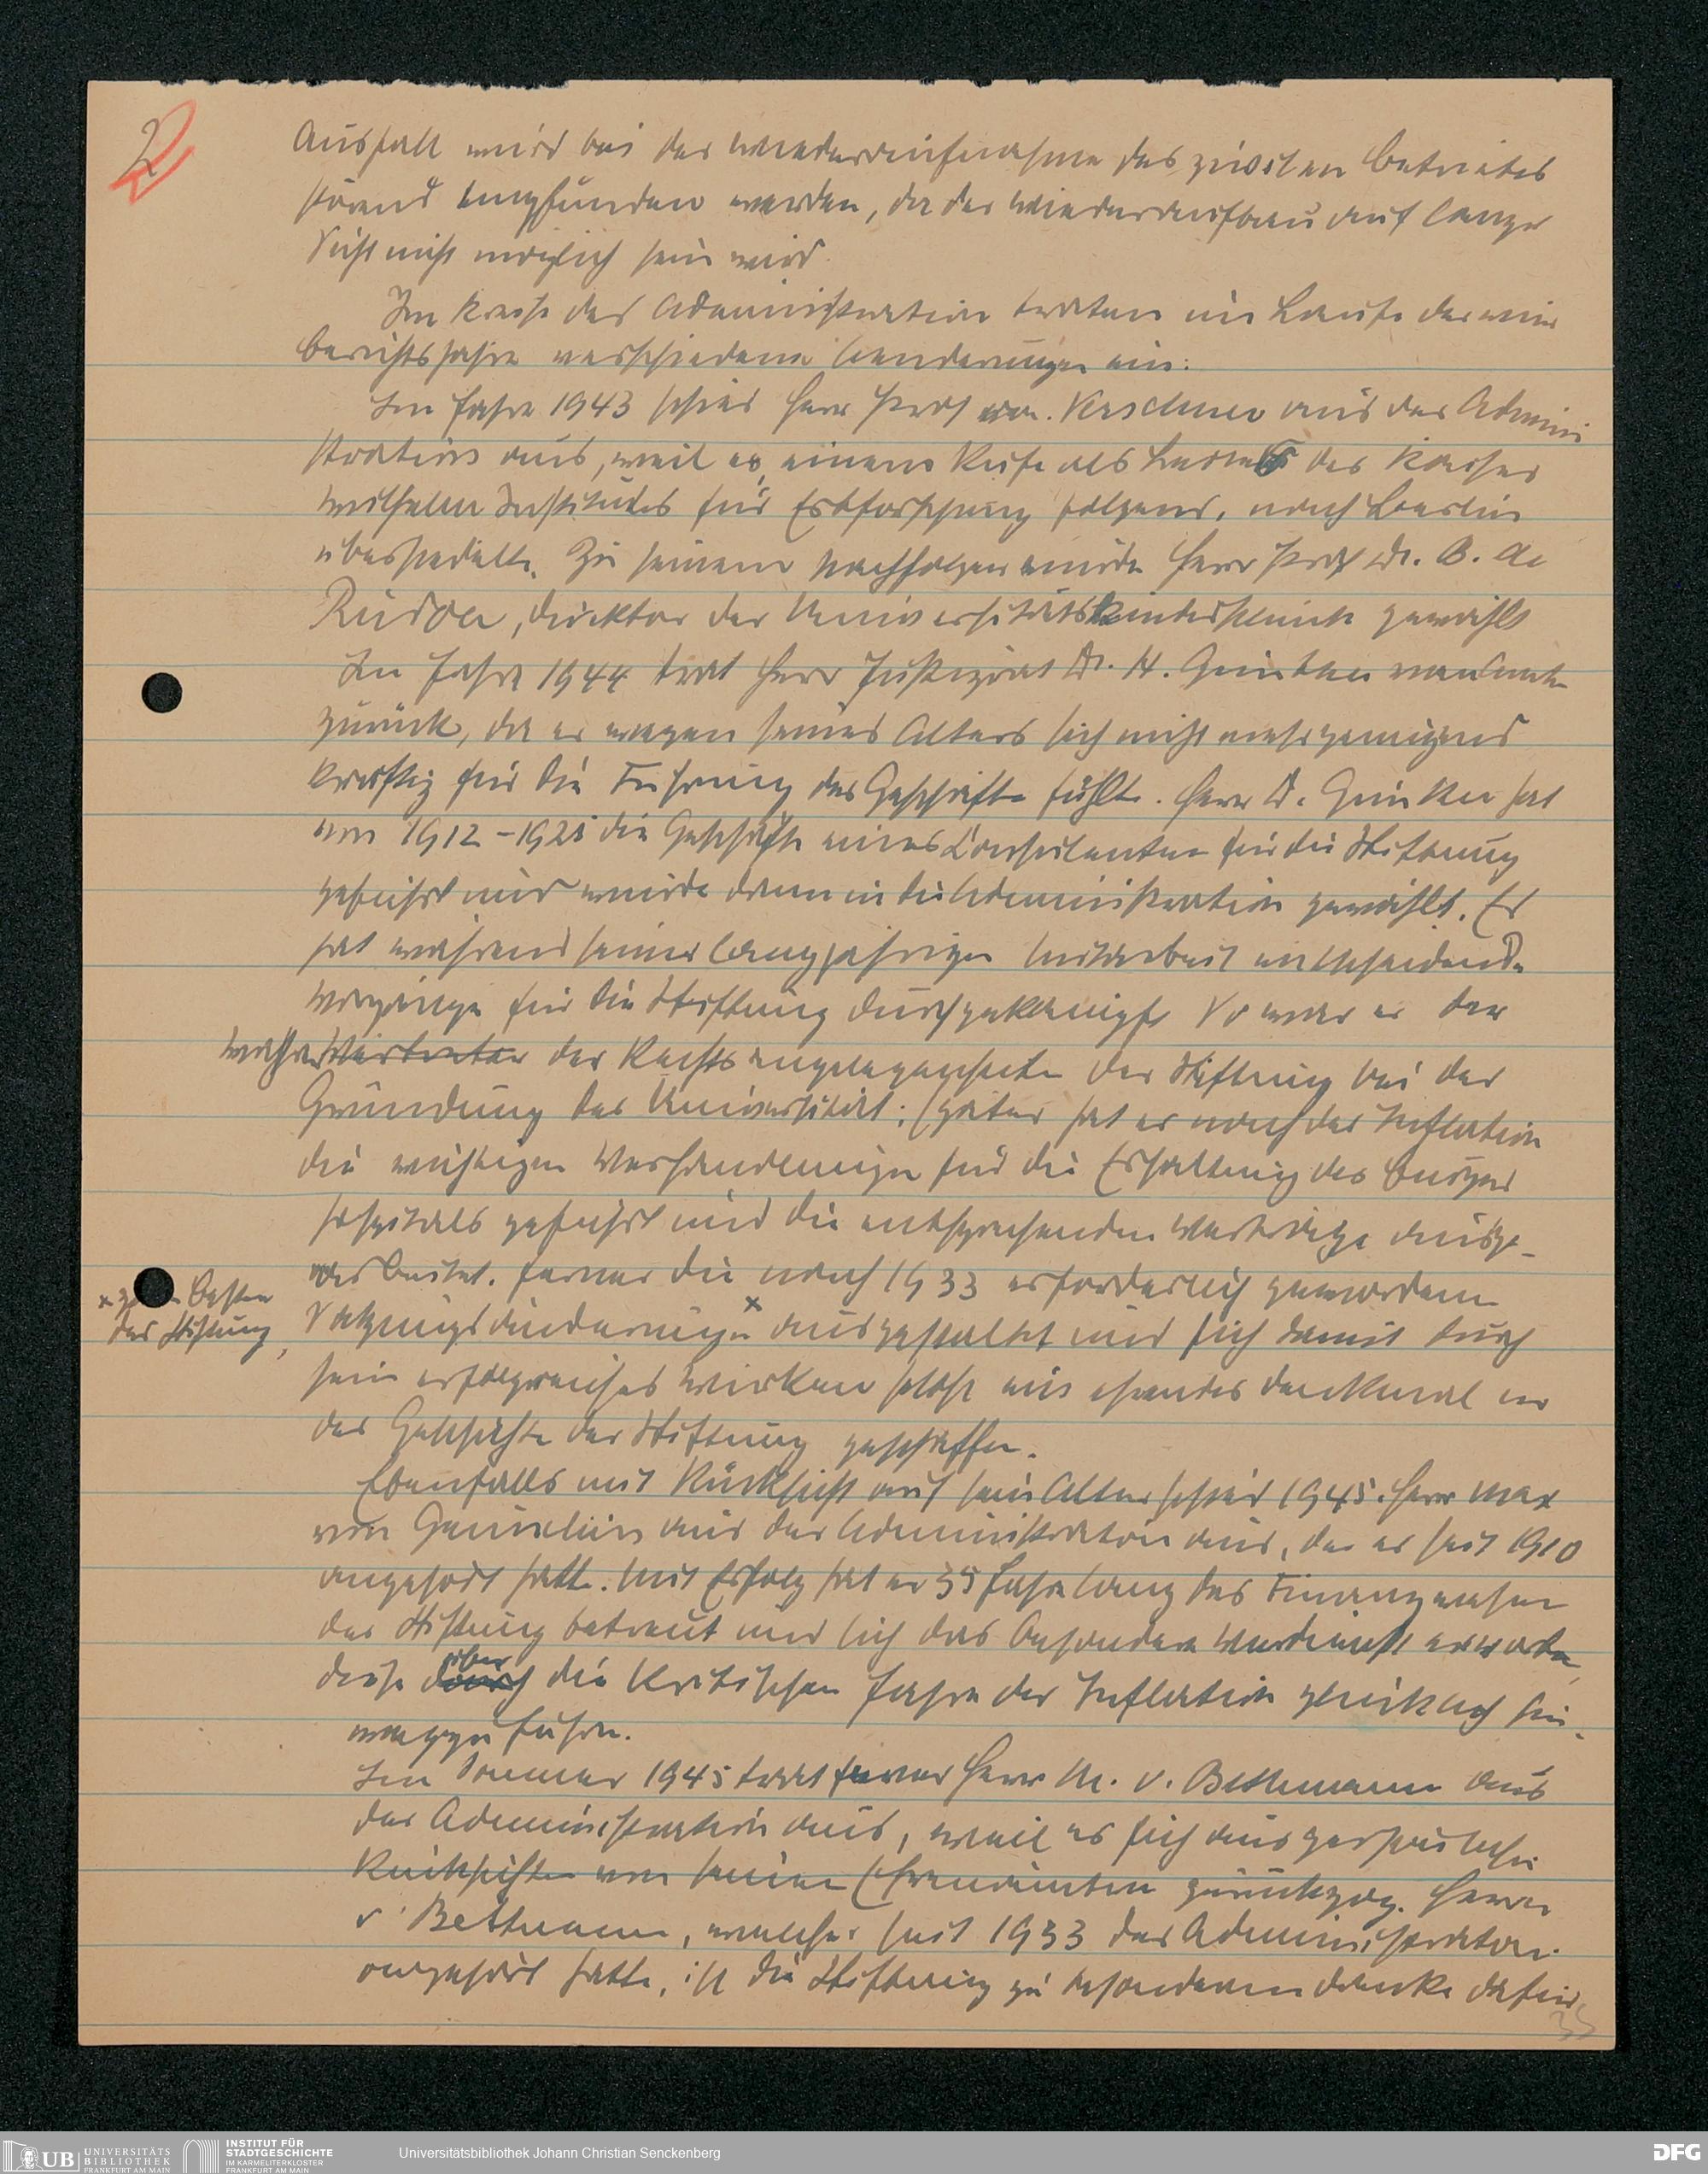 2
Ausfall wird bei der Wiederaufnahme des zivilen Betriebes
störend empfunden werden, da der Wiederaufbau auf lange
Sicht nicht möglich sein wird.
Im Kreise der Administration traten im Laufe der
Berichtsjahre verschiedene Aenderungen ein:
Im Jahre 1943 schied Herr Prof von Verschuer aus der Admini
stration aus, weil er, einem Rufe als Leiter des Kaiser
Wilhelm Institutes für Erbforschung folgend, nach Berlin
übersiedelte. Zu seinem Nachfolger wurde Herr Prof Dr. B. de
Rudder, Direktor der Universitätskinderklinik gewählt
Im Jahre 1944 trat Herr Justizrat Dr. A. Günther vom Amte
zurück, da er wegen seines Alters sich nicht mehr genügend
kräftig für die Führung der Geschäfte fühlte. Herr Dr. Günther hat
von 1912-1925 die Geschäfte eines Consulenten für die Stiftung
geführt und wurde dann in die Administration gewählt. Er
hat während seiner langjährigen Mitarbeit entscheidende
Vorgänge für die Stiftung durchgekämpft. So war er der
Wahrer Vertreter der Rechtsangelegenheiten der Stiftung bei der
Gründung der Universität. Später hat er nach der Inflation
die wichtigen Verhandlungen für die Erhaltung des Bürger
hospitals geführt und die entsprechenden Verträge ausge-
arbeitet. Ferner die nach 1933 erforderlich gewordenen
x zum Besten
der Stiftung,
Satzungsänderungen x ausgestaltet und sich damit durch
sein erfolgreiches Wirken selbst ein ehrendes Denkmal in
der Geschichte der Stiftung geschaffen.
Ebenfalls mit Rücksicht auf sein Alter schied 1945. Herr Max
von Grunelius aus der Administration aus, der er seit 1910
angehört hatte. Mit Erfolg hat er 35 Jahre lang das Finanzwesen
der Stiftung betreut und sich das besondere Verdienst erworben,
diese durch über die kritischen Jahre der Inflation glücklich hin-
wegzuführen.
Im Sommer 1945 trat ferner Herr M. v. Bethmann aus
der Administration aus, weil er sich aus gesundheitlichen
Rücksichten von seinen Ehrenämtern zurückzog. Herrn
v. Bethmann, welcher seit 1933 der Administration
angehört hatte, ist die Stiftung zu besonderem Danke dafür
35
UB UNIVERSITÄTS
BIBLIOTHEK
FRANKFURT AM MAIN
INSTITUT FÜR
STADTGESCHICHTE
IM KARMELITERKLOSTER
FRANKFURT AM MAIN
Universitätsbibliothek Johann Christian Senckenberg
DFG